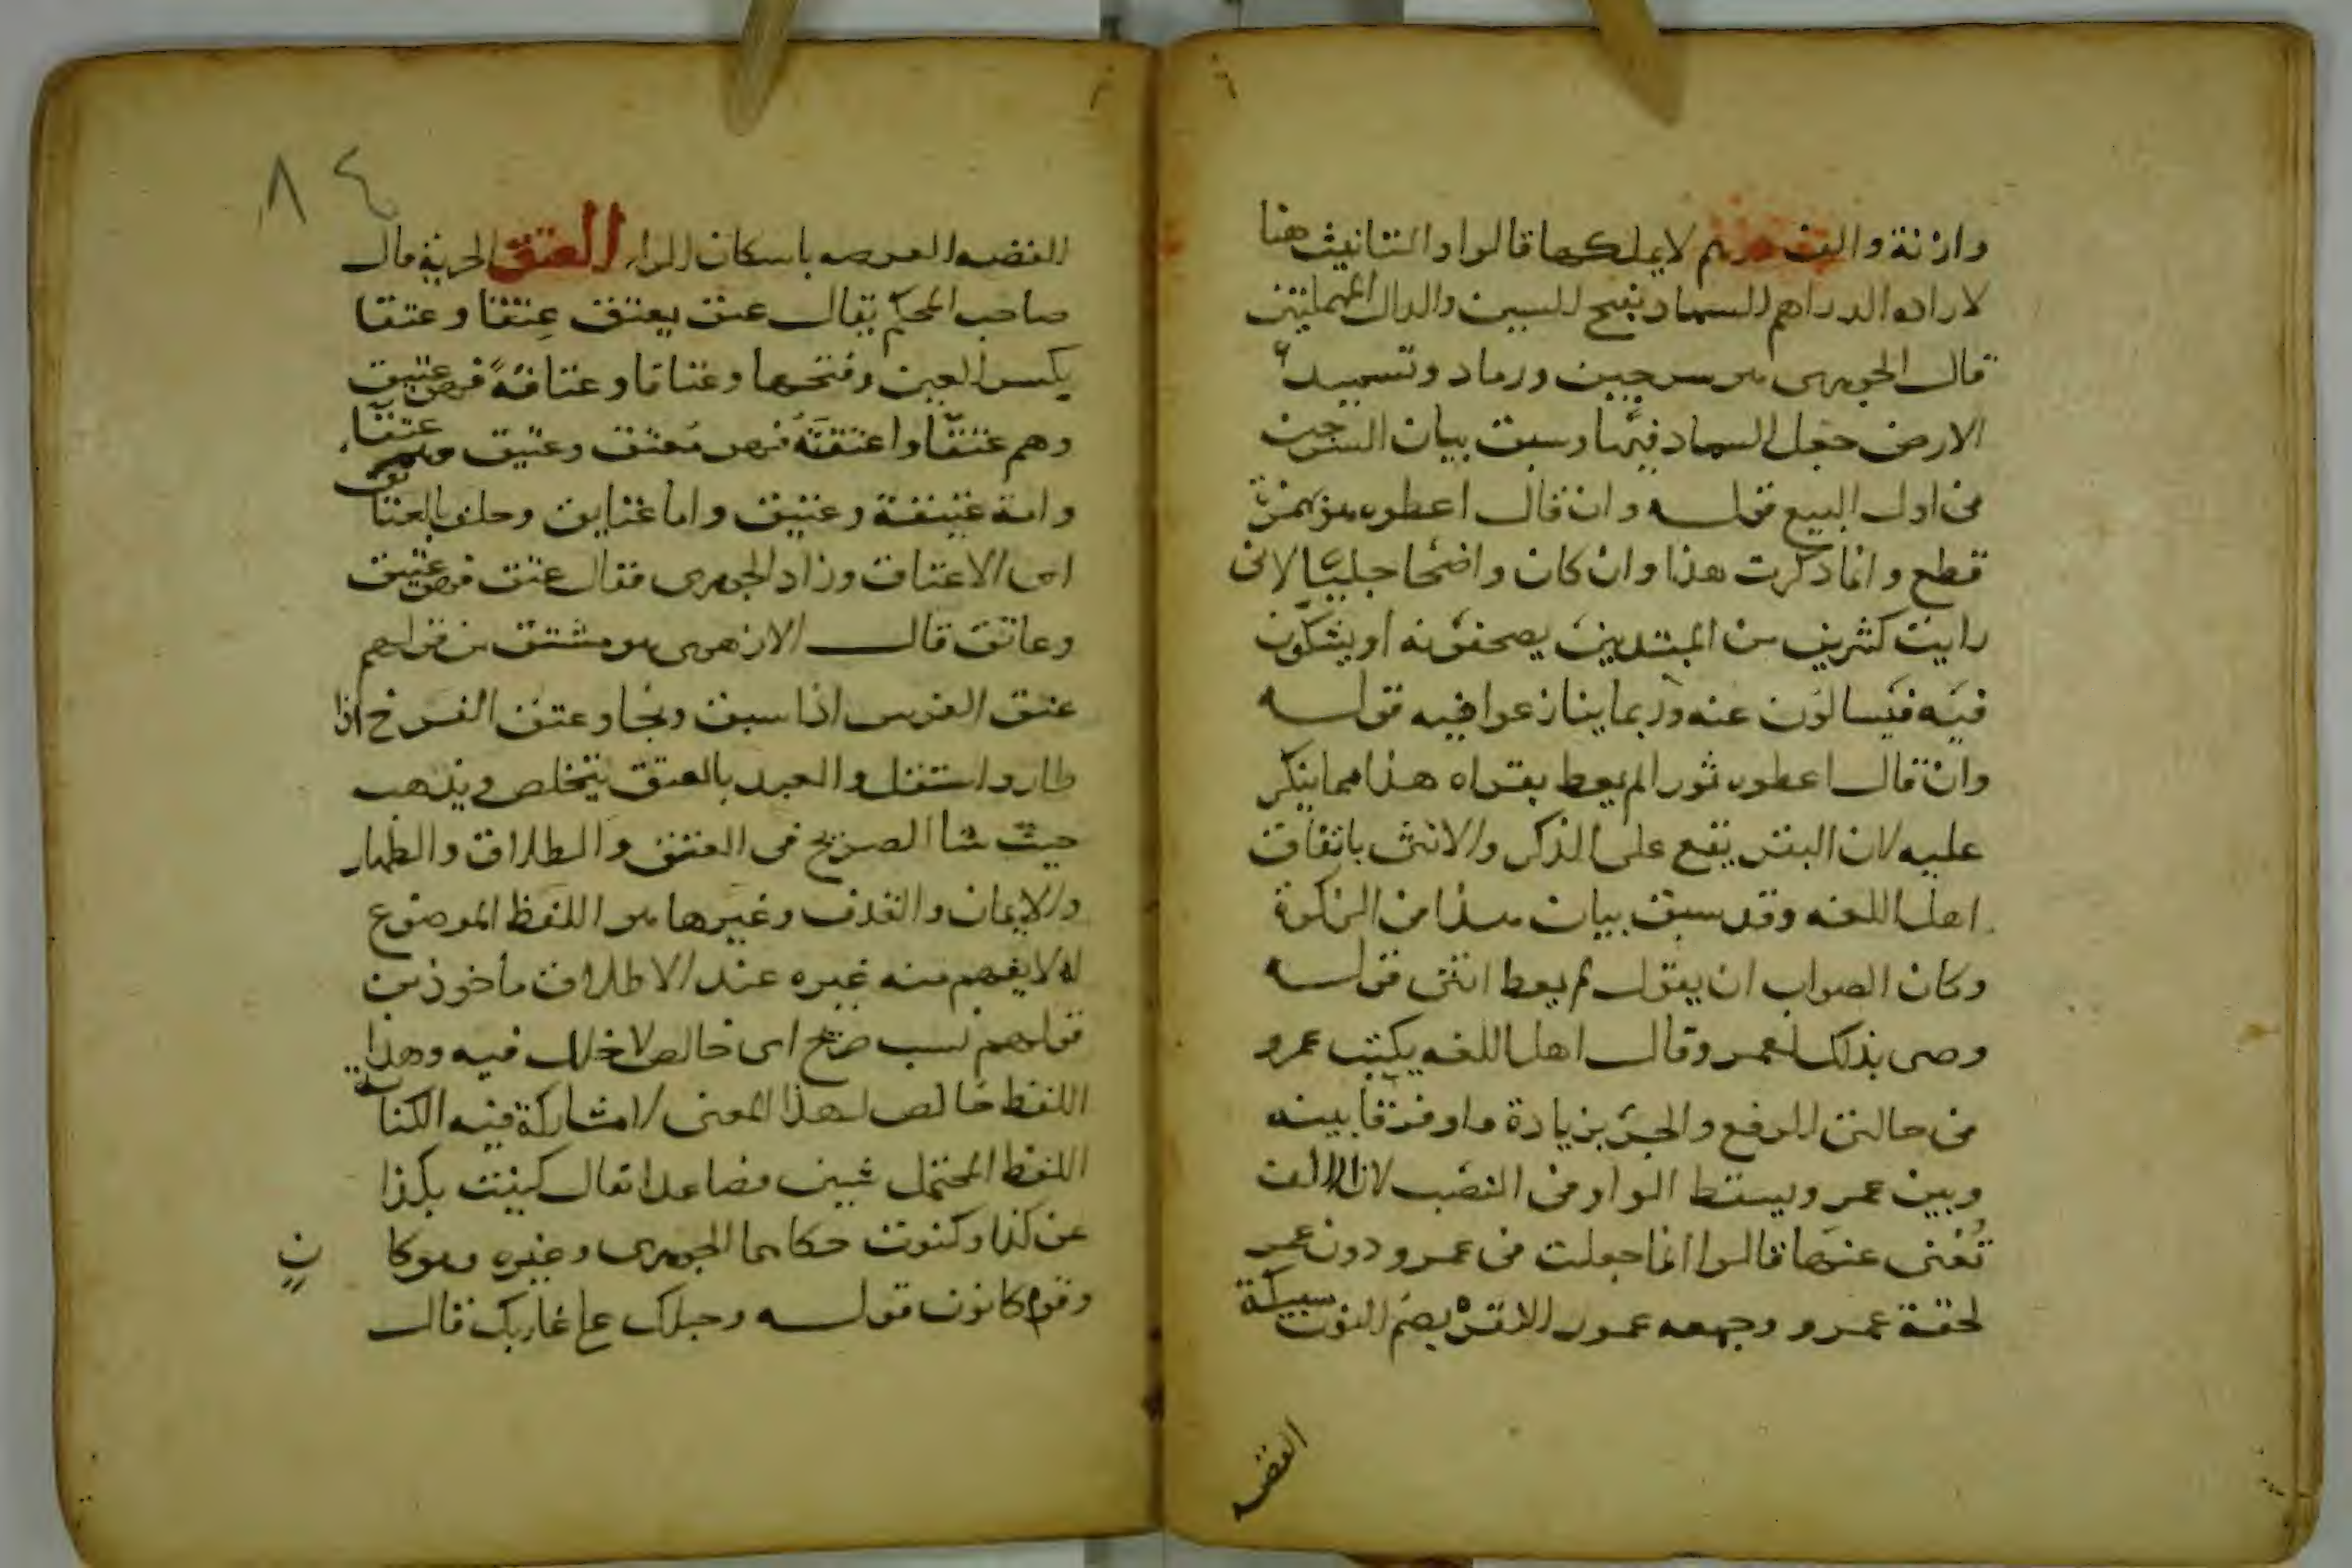 وازنة والف درهم لا يملكها قالوا والتانيث هنا
لاراده الدراهم السماد بفتح السين والدال المهملتين
قال الجوهرى هو سرجين ورماد وتسميد
الارض جعل السماد فيها وسبق بيان السرجين
فى اول البيع قوله وان قال اعطوه هو بهمزة
قطع وانما ذكرت هذا وان كان واضحا جليا لانى
رايت كثيرين من المبتديين يصحفونه او يشكون
فيه فيسالون عنه وربما يتنازعوا فيه قوله
وان قال اعطوه ثورا لم يعط بقراه هذا مما ينكر
عليه لان البقر يقع على الذكر والانثى باتفاق
اهل اللغه وقد سبق بيان هذا فى الزكوة
وكان الصواب ان يقول لم يعط انثى قوله
وصى بذلك لعمر وقال اهل اللغه يكتب عمرو
فى حالتى الرفع والجر بزيادة واو فرقا بينه
وبين عمر ويسقط الواو فى النصب لان الالف
تغنى عنها قالوا انما جعلت فى عمرو دون عمر
لخفة عمرو وجمعه عمور النقره بضم النون سبيكة
الفضه
٨٤
الفضه القرصه باسكان الراء العتق الحرية قال
صاحب المحكم يقال عتق يعتق عِتقا وعتقا
بكسر العين وفتحها وعتاقا وعتاقةً فهو عتيق
وهم عتقا واعتقته فهو مُعتق وعتيق وهم عتقا
وامة عتيقة وعتيق واما عتايق وحلف بالعتاق
اى الاعتاق وزاد الجوهرى فقال عتق فهو عتيق
وعاتق قال الازهرى هو مشتق من قولهم
عتق الفرس اذا سبق ونجا وعتق الفرخ اذا
طار واستقل والعبد بالعتق يتخلص ويذهب
حيث شا الصريح فى العتق والطلاق والظهار
والايمان والقذف وغيرها هو اللفظ الموضوع
له لا يفهم منه غيره عند الاطلاق ماخوذ من
قولهم نسب صريح اى خالص لا خلل فيه وهذا
اللفظ خالص لهذا المعنى لا مشاركة فيه الكناية
اللفظ المحتمل شيين فصاعدا يقال كنيت بكذا
عن كذا وكنوت حكاهما الجوهرى وغيره وهو كان
وقوم كانون قوله وحبلك على غاربك قال